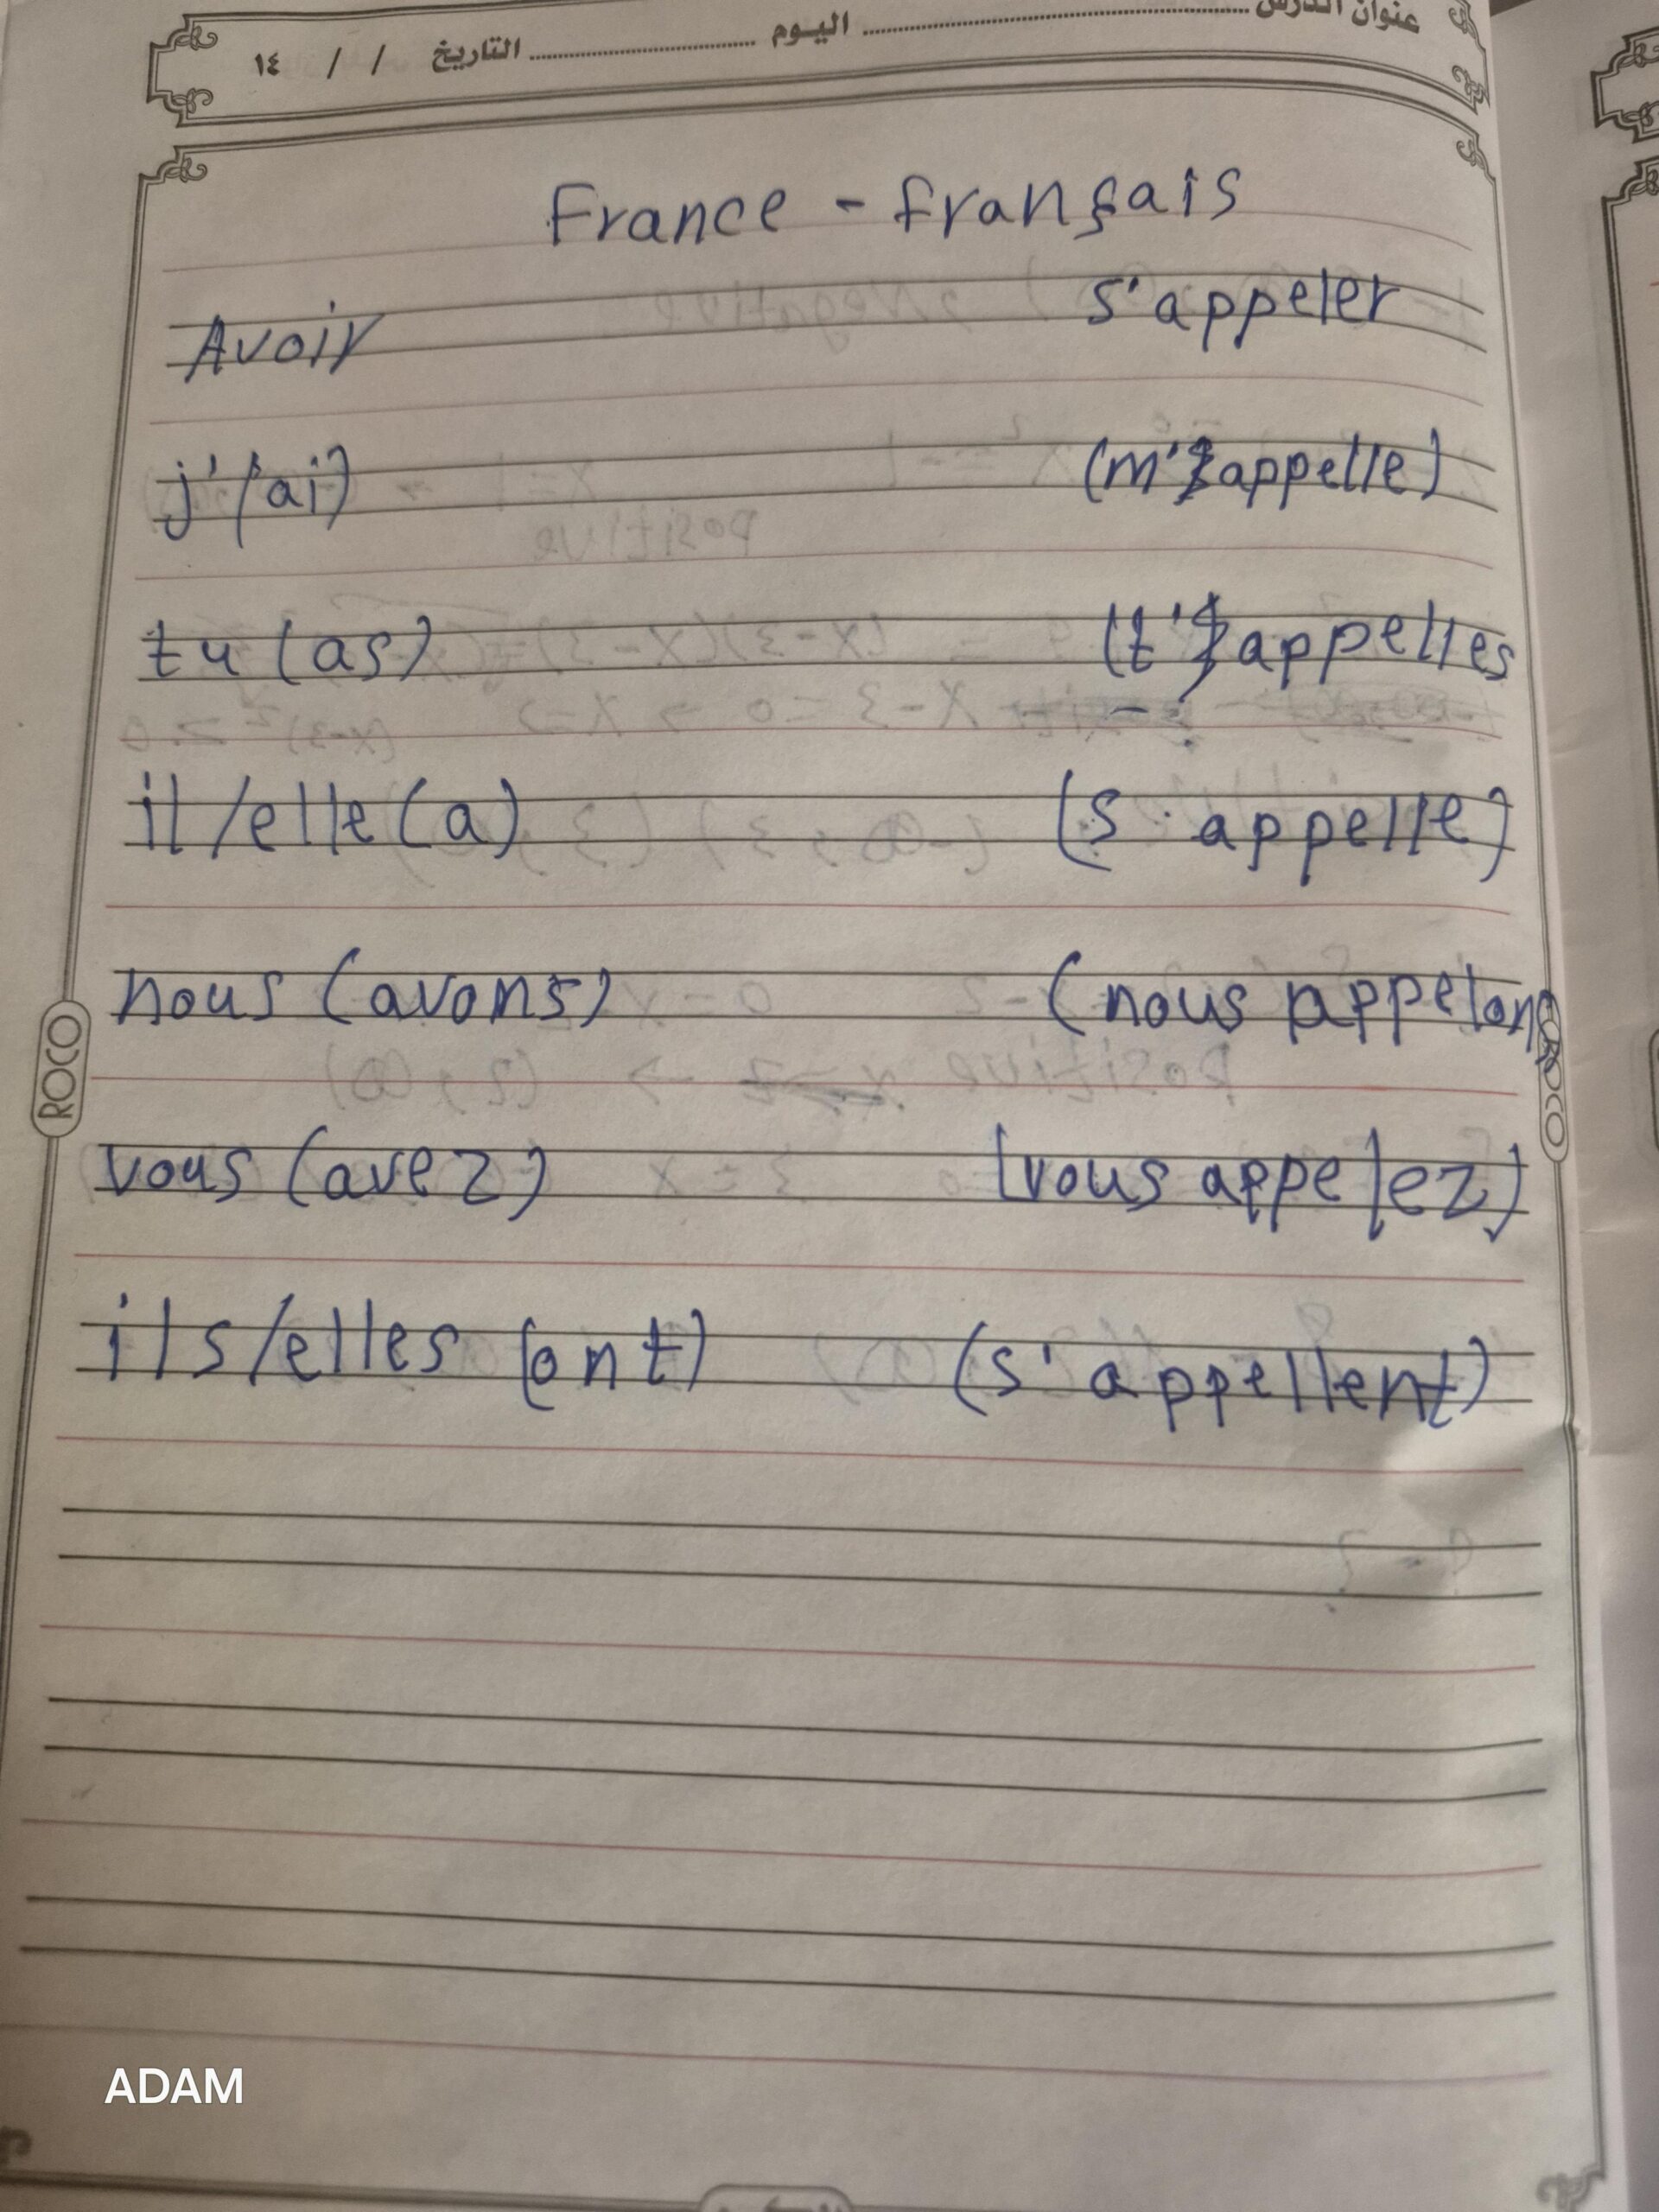 عنوان الدرس اليوم التاريخ / / ١٤
France - français
Avoir s'appeler
j'(ai) (m'appelle)
tu (as) (t'appelles
il/elle (a) (s'appelle)
nous (avons) (nous appelons
vous (avez) (vous appelez)
ils/elles (ont) (s'appellent)
ROCO
ROCO
ADAM